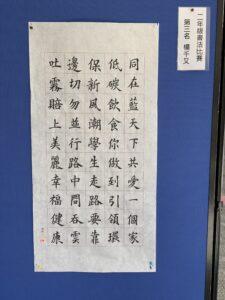 二年級書法比賽
第三名 楊千又
同在藍天下共愛一個家
低碳飲食你做到引領環
保新風潮學生走路要靠
邊切勿並行路中間吞雲
吐霧賠上美麗幸福健康